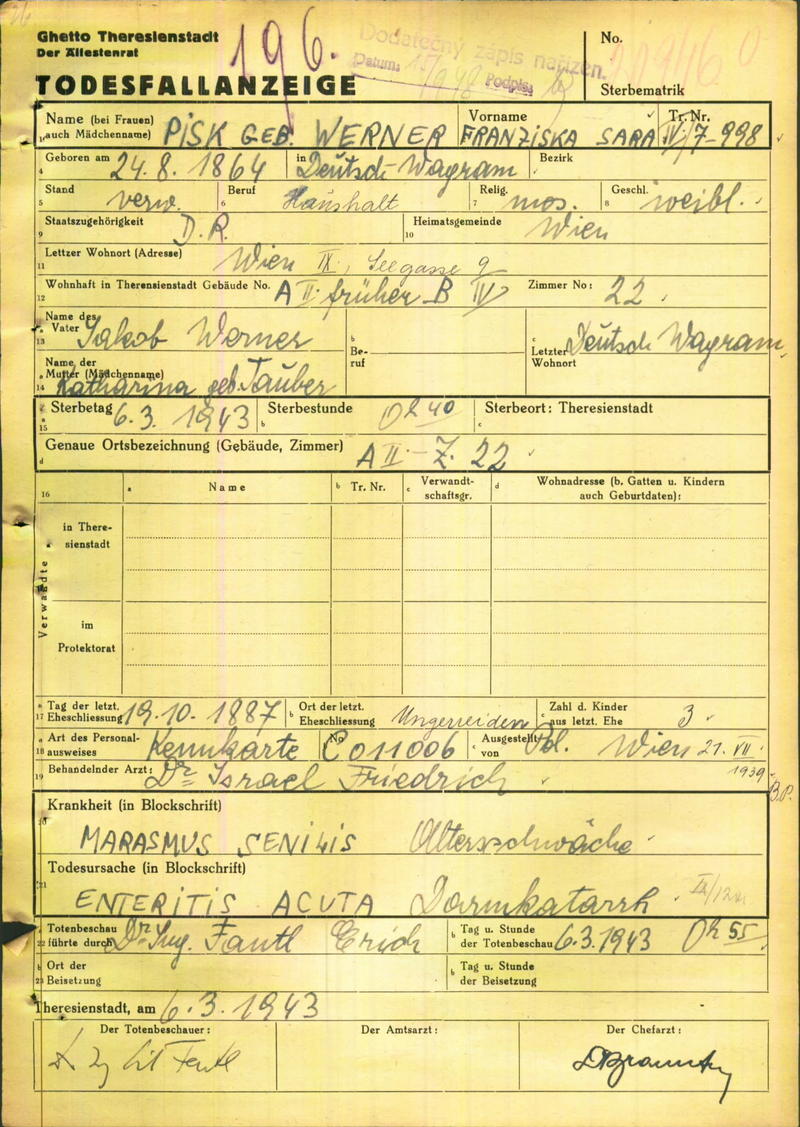 Ghetto Theresienstadt
Der Ältestenrat
196.
Dodatečný zápis nařízen.
Datum: Podpis:
No.
TODESFALLANZEIGE
Sterbematrik
Name (bei Frauen) Vorname Tr. Nr.
1 auch Mädchenname) PISK GEB. WERNER FRANZISKA SARA IV/7-998
4 Geboren am 24.8.1864 in Deutsch-Wagram Bezirk
5 Stand verw. 6 Beruf Haushalt 7 Relig. mos. 8 Geschl. weibl.
9 Staatszugehörigkeit D.R. 10 Heimatsgemeinde Wien
11 Lettzer Wohnort (Adresse) Wien IX, Seegasse 9
12 Wohnhaft in Theresienstadt Gebäude No. A II früher B IV Zimmer No: 22
13 Name des Vater Jakob Werner b Beruf c Letzter Wohnort Deutsch Wagram
14 Name der Mutter (Mädchenname) Katharina geb. Tauber
15 a Sterbetag 6.3.1943 b Sterbestunde 0h 40 c Sterbeort: Theresienstadt
d Genaue Ortsbezeichnung (Gebäude, Zimmer) A II - Z. 22
16 a Name b Tr. Nr. c Verwandt-schaftsgr. d Wohnadresse (b. Gatten u. Kindern
auch Geburtdaten):
Verwandte
in There-
sienstadt
im
Protektorat
17 a Tag der letzt. Eheschliessung 19.10.1887 b Ort der letzt. Eheschliessung c Zahl d. Kinder aus letzt. Ehe 3
18 a Art des Personal-ausweises Kennkarte b No C 011006 c Ausgestellt von Pol. Wien 21. VII.
1939
19 Behandelnder Arzt: Dr Israel Friedrich
B.P.
Krankheit (in Blockschrift)
MARASMUS SENILIS Altersschwäche
Todesursache (in Blockschrift)
21 ENTERITIS ACUTA Darmkatarrh
22 Totenbeschau führte durch Dr Ing. Fantl Erich b Tag u. Stunde der Totenbeschau 6.3.1943 0h 55
23 Ort der Beisetzung b Tag u. Stunde der Beisetzung
Theresienstadt, am 6.3.1943
Der Totenbeschauer: Der Amtsarzt: Der Chefarzt: